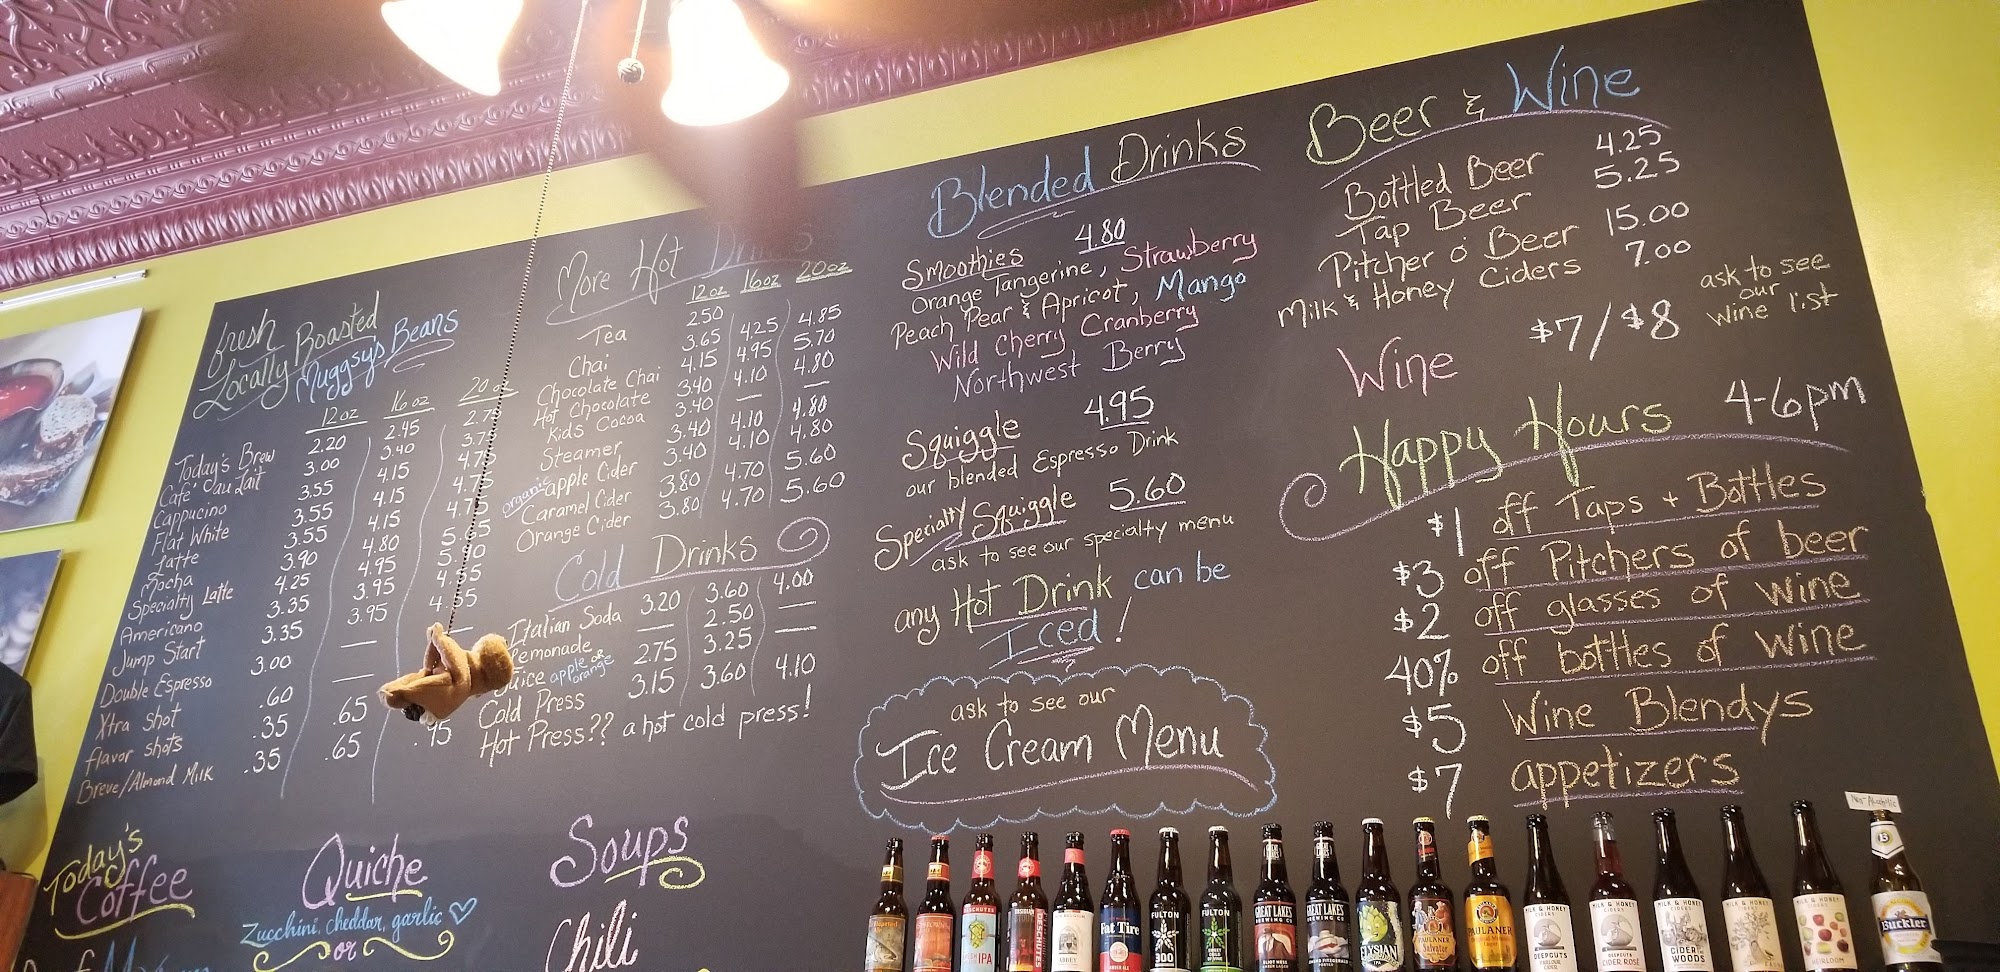 fresh
Locally Roasted
Muggsy's Beans
12 oz 16 oz 20 oz
Today's Brew 2.20 2.45 2.75
Café au Lait 3.00 3.40 3.75
Cappucino 3.55 4.15 4.75
Flat White 3.55 4.15 4.75
Latte 3.55 4.15 4.75
Mocha 3.90 4.80 5.65
Specialty Latte 4.25 4.95
Americano 3.35 3.95 4.55
Jump Start 3.35 3.95 4.55
Double Espresso 3.00 — —
Xtra Shot .60
flavor shots .35 .65
Breve/Almond Milk .35 .65 .95
More Hot Drinks
12 oz 16 oz 20 oz
Tea 2.50
Chai 3.65 4.25 4.85
Chocolate Chai 4.15 4.95 5.70
Hot Chocolate 3.40 4.10 4.80
Kids' Cocoa 3.40 — —
Steamer 3.40 4.10 4.80
organic apple Cider 3.40 4.10 4.80
Caramel Cider 3.80 4.70 5.60
Orange Cider 3.80 4.70 5.60
Cold Drinks
Italian Soda 3.20 3.60 4.00
Lemonade — 2.50 —
Juice apple or orange 2.75 3.25 —
Cold Press 3.15 3.60 4.10
Hot Press?? a hot cold press!
Blended Drinks
Smoothies 4.80
Orange Tangerine, Strawberry
Peach Pear & Apricot, Mango
Wild Cherry Cranberry
Northwest Berry
Squiggle 4.95
our blended Espresso Drink
Specialty Squiggle 5.60
ask to see our specialty menu
any Hot Drink can be
Iced!
ask to see our
Ice Cream Menu
Beer & Wine
Bottled Beer 4.25
Tap Beer 5.25
Pitcher o' Beer 15.00
Milk & Honey Ciders 7.00
Wine $7/$8
ask to see
our
wine list
Happy Hours 4-6pm
$1 off Taps + Bottles
$3 off Pitchers of beer
$2 off glasses of wine
40% off bottles of wine
$5 Wine Blendys
$7 appetizers
Today's
Coffee
Quiche
Zucchini, cheddar, garlic
or
Soups
Chili
DESCHUTES
IPA
DESCHUTES
ABBEY
Fat Tire
FULTON
300
FULTON
GREAT LAKES
BREWING CO
ELIOT NESS
GREAT LAKES
BREWING CO
ELYSIAN
IPA
PAULANER
Salvator
PAULANER
MILK & HONEY
CIDERS
MILK & HONEY
CIDERS
CIDER ROSÉ
MILK & HONEY
CIDERS
CIDER
WOODS
MILK & HONEY
MILK & HONEY
HEIRLOOM
Non-Alcoholic
Buckler